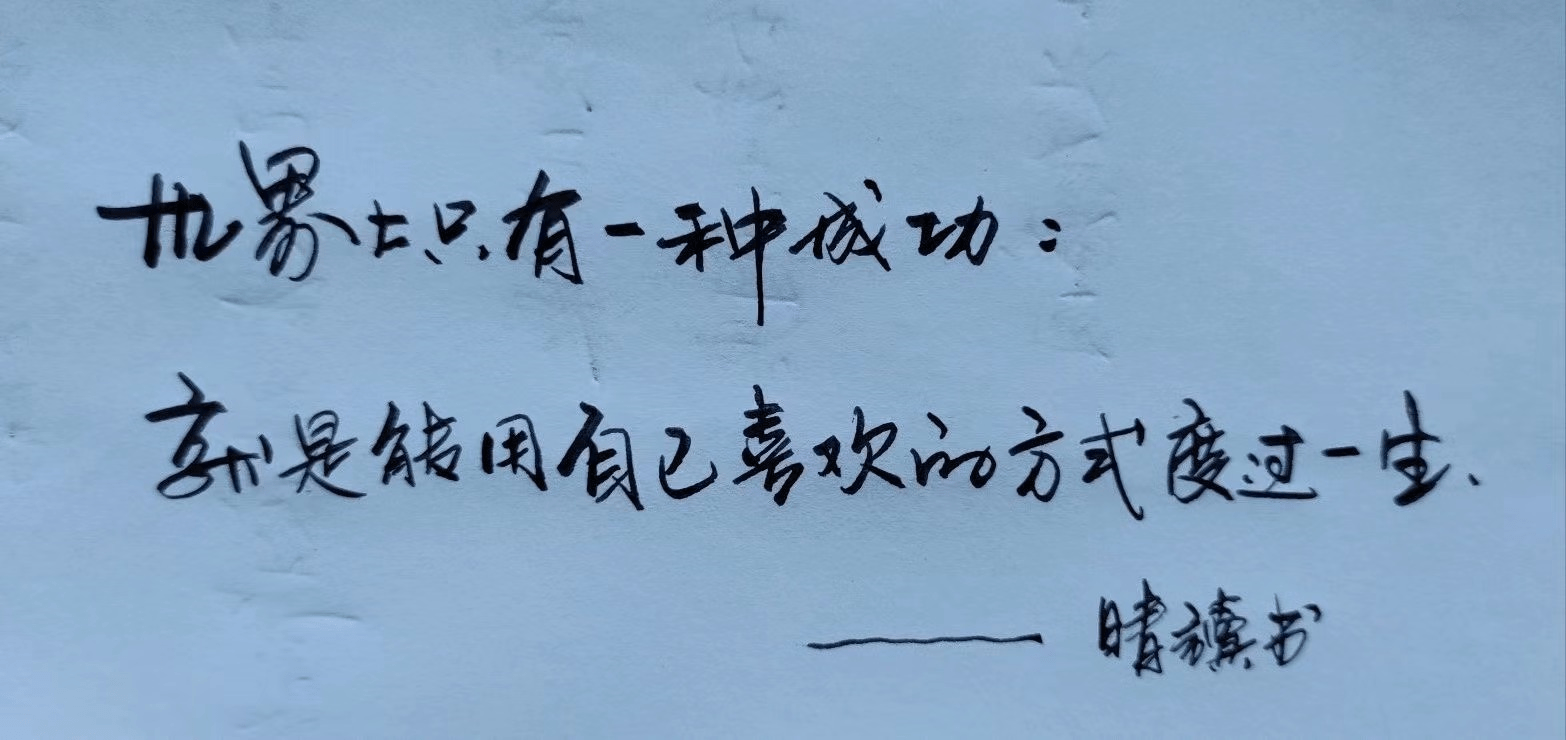 世界上只有一种成功：
就是能用自己喜欢的方式度过一生、
—— 晴讀书